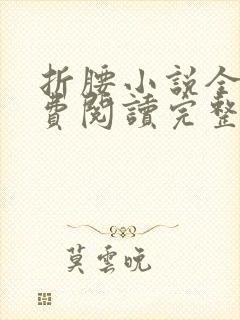 折腰小説全
費閱讀完整
莫雲晚